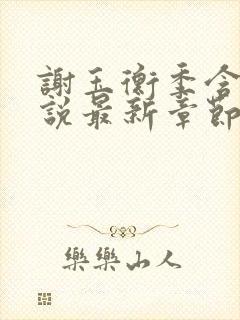 謝玉衡季含
說最新章節
樂樂山人